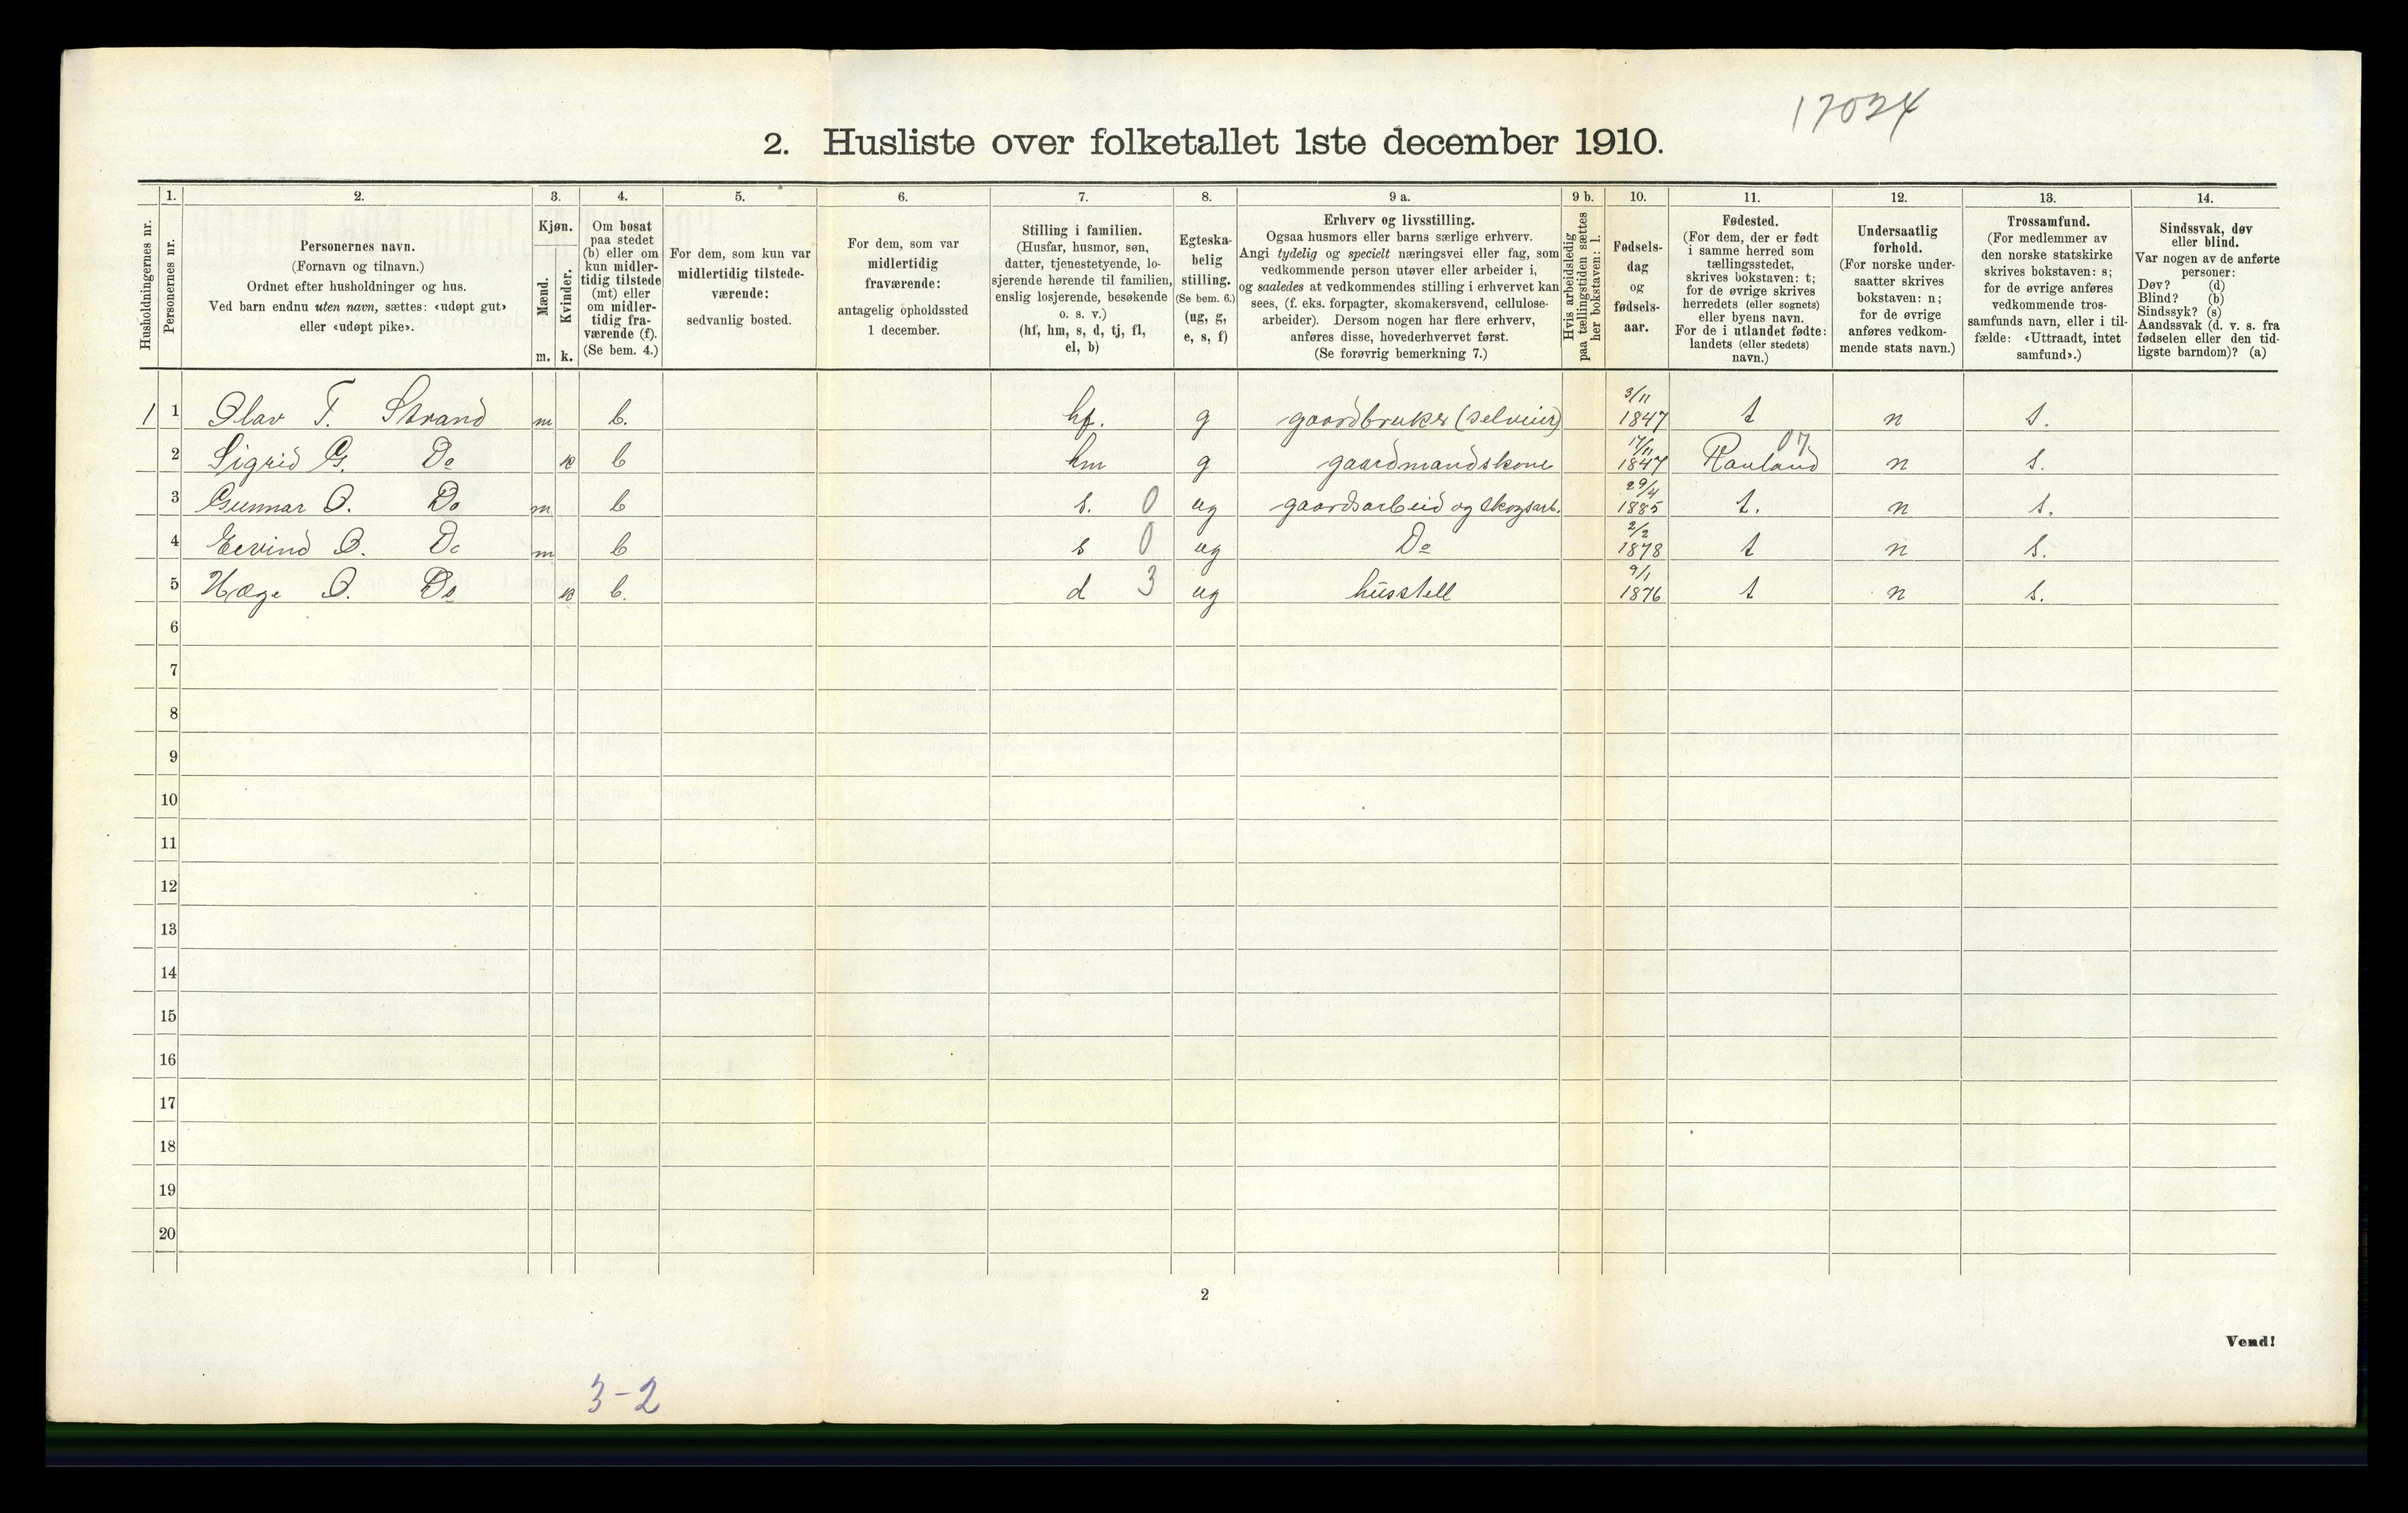 17024
2. Husliste over folketallet 1ste december 1910.
Husholdningernes nr.
1.
Personernes nr.
2.
Personernes navn.
(Fornavn og tilnavn.)
Ordnet efter husholdninger og hus.
Ved barn endnu uten navn, sættes: «udøpt gut»
eller «udøpt pike».
3.
Kjøn.
Mænd.
m.
Kvinder.
k.
4.
Om bosat
paa stedet
(b) eller om
kun midler-
tidig tilstede
(mt) eller
om midler-
tidig fra-
værende (f).
(Se bem. 4.)
5.
For dem, som kun var
midlertidig tilstede-
værende:
sedvanlig bosted.
6.
For dem, som var
midlertidig
fraværende:
antagelig opholdssted
1 december.
7.
Stilling i familien.
(Husfar, husmor, søn,
datter, tjenestetyende, lo-
sjerende hørende til familien,
enslig losjerende, besøkende
o. s. v.)
(hf, hm, s, d, tj, fl,
el, b)
8.
Egteska-
belig
stilling.
(Se bem. 6.)
(ug, g,
e, s, f)
9 a.
Erhverv og livsstilling.
Ogsaa husmors eller barns særlige erhverv.
Angi tydelig og specielt næringsvei eller fag, som
vedkommende person utøver eller arbeider i,
og saaledes at vedkommendes stilling i erhvervet kan
sees, (f. eks. forpagter, skomakersvend, cellulose-
arbeider). Dersom nogen har flere erhverv,
anføres disse, hovederhvervet først.
(Se forøvrig bemerkning 7.)
9 b.
Hvis arbeidsledig
paa tællingstiden sættes
her bokstaven: l.
10.
Fødsels-
dag
og
fødsels-
aar.
11.
Fødested.
(For dem, der er født
i samme herred som
tællingsstedet,
skrives bokstaven: t;
for de øvrige skrives
herredets (eller sognets)
eller byens navn.
For de i utlandet fødte:
landets (eller stedets)
navn.)
12.
Undersaatlig
forhold.
(For norske under-
saatter skrives
bokstaven: n;
for de øvrige
anføres vedkom-
mende stats navn.)
13.
Trossamfund.
(For medlemmer av
den norske statskirke
skrives bokstaven: s;
for de øvrige anføres
vedkommende tros-
samfunds navn, eller i til-
fælde: «Uttraadt, intet
samfund».)
14.
Sindssvak, døv
eller blind.
Var nogen av de anførte
personer:
Døv? (d)
Blind? (b)
Sindssyk? (s)
Aandssvak (d. v. s. fra
fødselen eller den tid-
ligste barndom)? (a)
1 1 Olav T. Strand m b. hf. g gaardbruker (selveier) 3/11 1847 t n s.
2 Sigrid G. Do k b hm g gaardmandskone 17/11 1847 Rauland 07 n s.
3 Gunnar O. Do m b s. 0 ug gaardsarbeid og skogsarb. 29/4 1885 t. n s.
4 Eevind O. Do m b s 0 ug Do 2/2 1878 t n s.
5 Hæge O. Do k b. d 3 ug husstell 9/1 1876 t n s.
6
7
8
9
10
11
12
13
14
15
16
17
18
19
20
2
Vend!
3-2